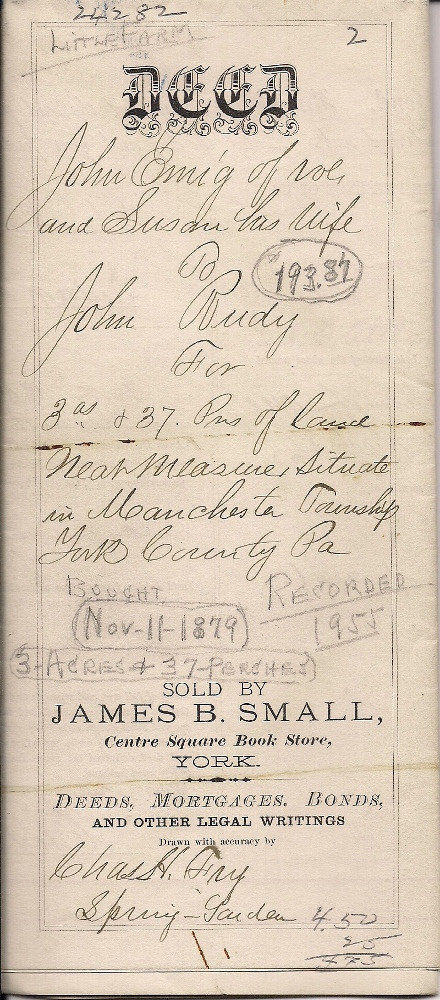 24282
LITTLE FARM
2
DEED
John Emig of
and Susan his Wife
To
$193.87
John Rudy
For
3 as & 37. Prs of land
Neat Measure, Situate
in Manchester Township
York County Pa
BOUGHT
RECORDED
Nov-11-1879
1955
3-ACRES & 37-PERCHES
SOLD BY
JAMES B. SMALL,
Centre Square Book Store,
YORK.
DEEDS, MORTGAGES, BONDS,
AND OTHER LEGAL WRITINGS
Drawn with accuracy by
Chas H. Fry
Spring-Garden
4.50
25
4.75